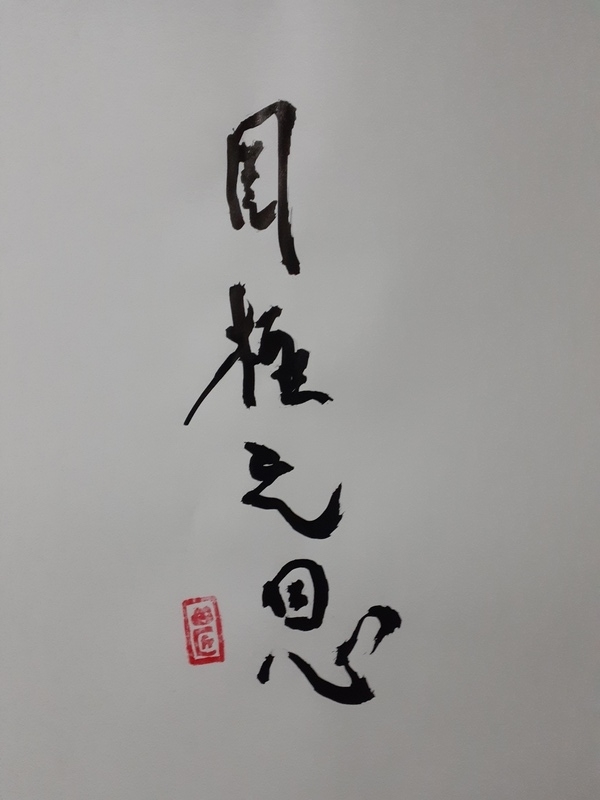 罔極之恩